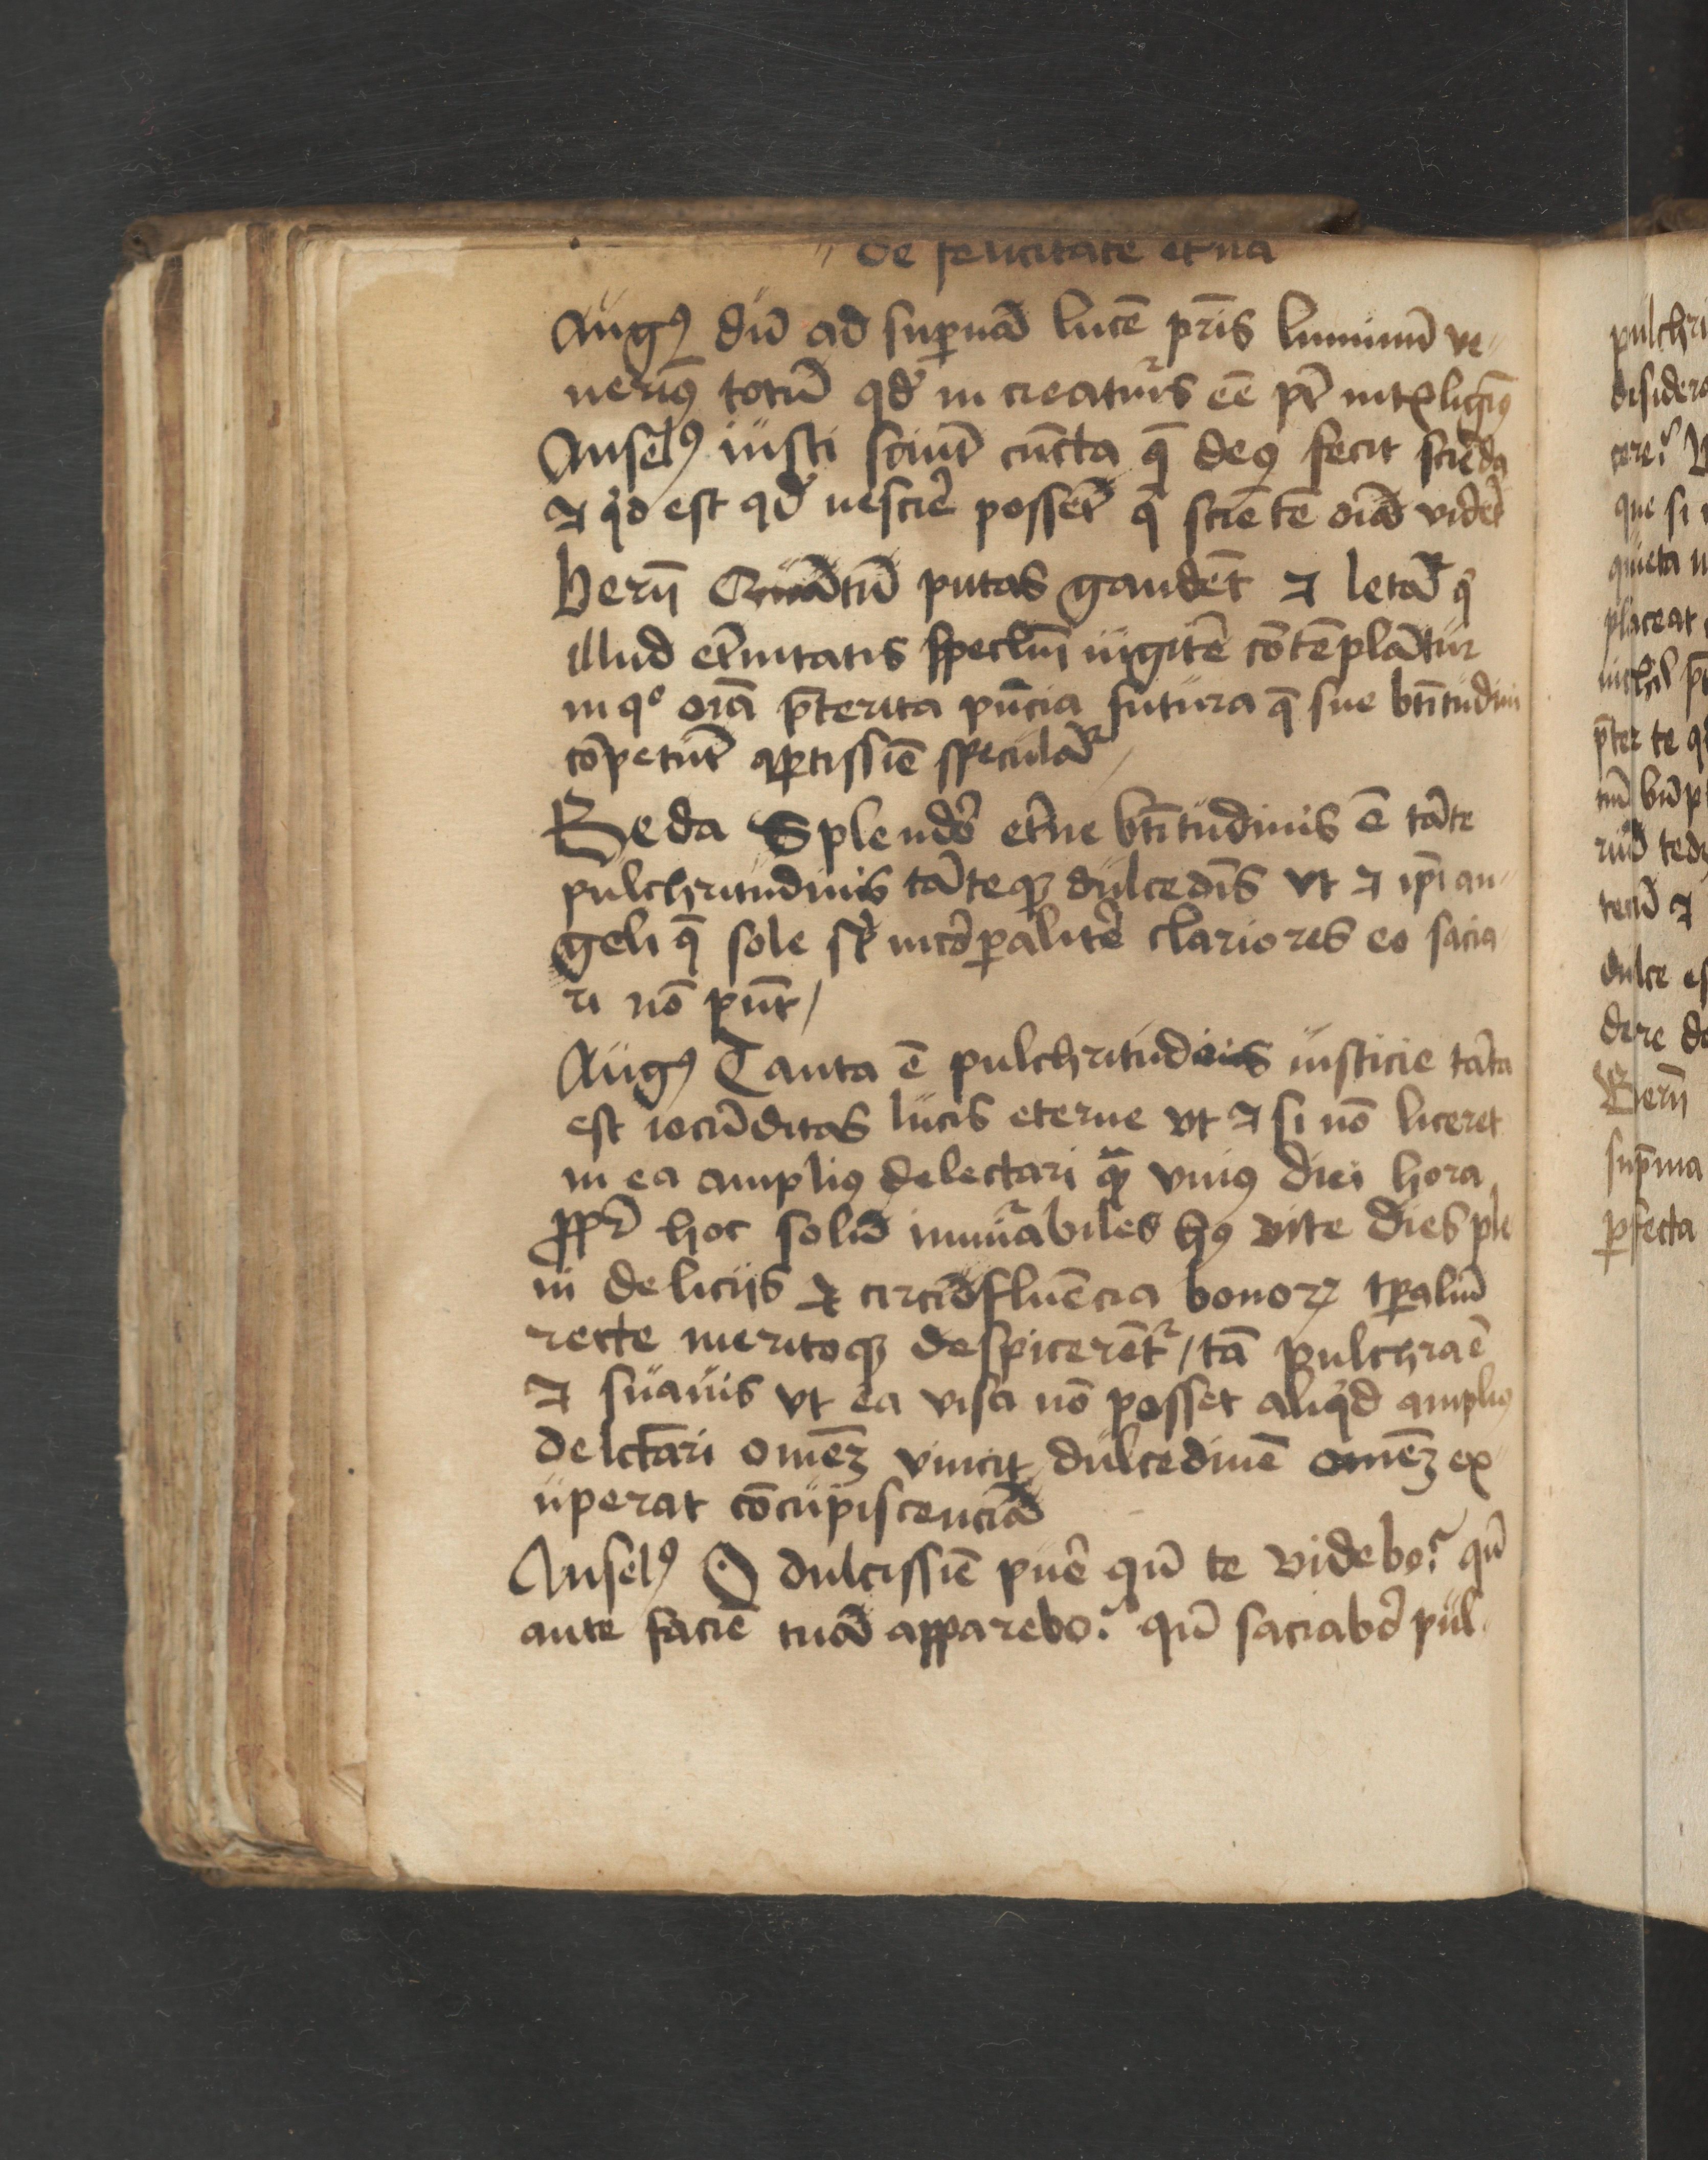 de felicitate et̄na
Augꝰ dū ad suꝑnā lucē pr̄is luminū ve-
nerimꝰ totū qd̛ in creaturis eē pt̄ intelligimꝰ
Anselꝰ iusti sciūt cūcta q̄ deꝰ fecit sciēda
⁊ qͥd est qd̛ nescire possēt q̄ sciētē oīa vidēt
berñ Quātū putas gaudēt ⁊ letāt᷑ qͥ
illud et̄nitatis specl̄m iugit̄ cōtēplātur
in qͦ oīa p̄terita pn̄cia futura q̄ sue btītudini
cōpetūt aꝑtissīe speculāt᷑
Beda Splendor et̄ne btītudinis ē tāte
pulchritudinis tāteqꝫ dulcedīs vt ⁊ ip̄i an-
geli q̄ sole sp̄ incōꝑalit̄ clariores eo sacia
ri nō pn̄t /
Augꝰ Tanta ē pulchritudinis iusticie tāta
est iocūditas lucis eterne vt ⁊ si nō liceret
in ea ampliꝰ delectari qͣꝫ vniꝰ diei hora
ꝓpt̄ hoc solū innūabiles hꝰ vite dies ple
ni delicijs ⁊ circūfluēcia bonoꝝ tꝑaliū
recte meritoqꝫ despicerēt᷑ / tā pulchra ē
⁊ suauis vt ea visa nō posset aliqͥd ampliꝰ
delctari omēꝫ vincit dulcedinē omēꝫ ex
uperat cōcupiscenciā
Anselꝰ O dulcissīe puer qn̄ te videbo? qn̄
ante faciē tuā apparebo? qn̄ saciabor pul-
pulchri
desidera
cere?
que si
quieta
placeat
nichil
p̄ter te
dulce es
dere de
Berñ
sup̄ma
ꝑfecta